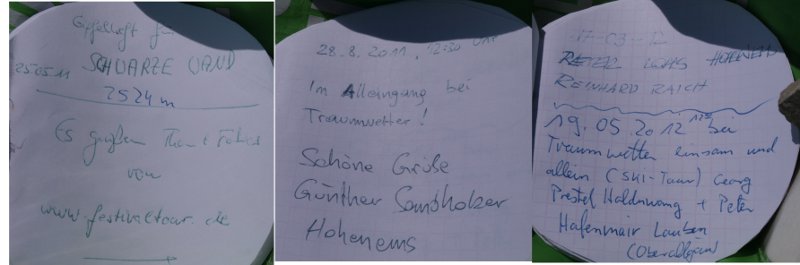 Gipfelheft für
25.05.11 SCHWARZE WAND
2524 m
Es grüßen Thom +
von
www.festivaltour.de
28.8.2011, 12:30 Uhr
Im Alleingang bei
Traumwetter!
Schöne Grüße
Günther Sandholzer
Hohenems
17-03-12
REINHARD RAICH
19.05.2012 bei
Traumwetter einsam und
allein (SKI-Tour) Georg
Prestel Haldenwang + Peter
Hafenmair Lauben
(Oberallgäu)